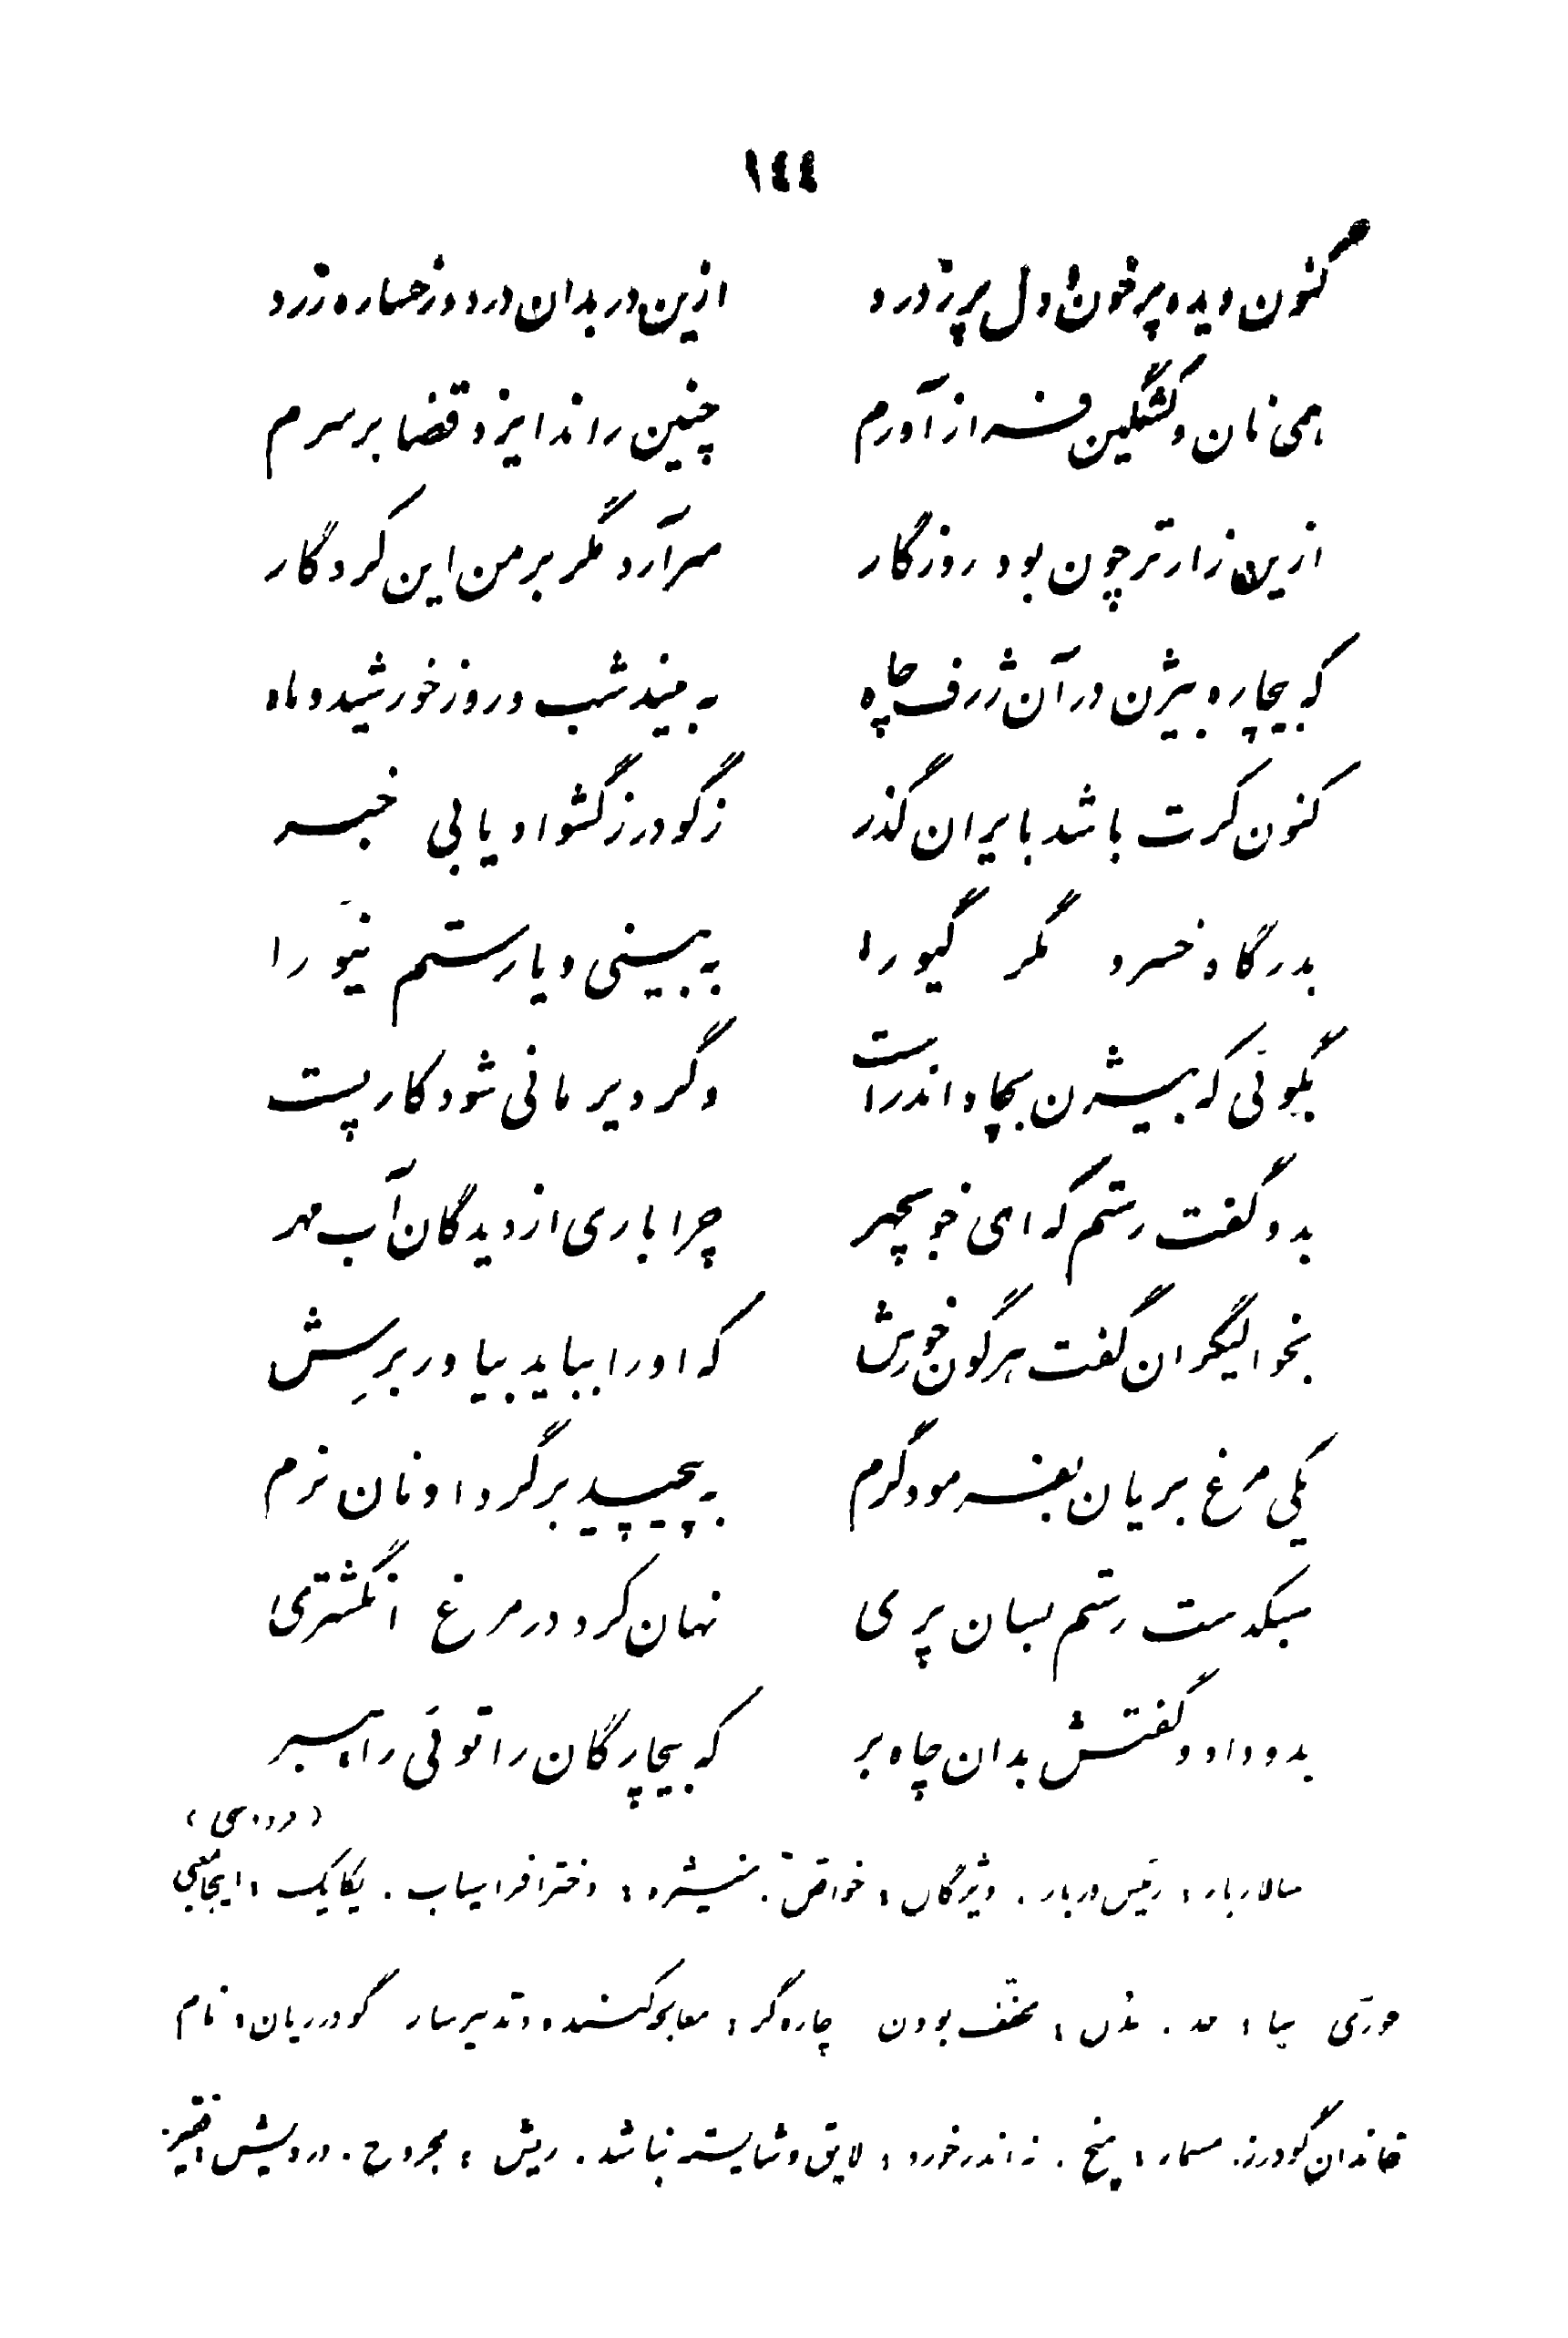 ١٤٤
کنون دیده پر خون و دل پر ز درد ازین در بدان در دو رخساره زرد
همی نان کشکین فراز آورم چنین راند ایزد قضا بر سرم
ازین زارتر چون بود روزگار سرآرد مگر بر من این کردگار
که بیچاره بیژن در آن ژرف چاه نه بیند شب و روز خورشید و ماه
کنون گرت باشد بایران گذر ز گودرز گشواد یابی خبر
بدرگاه خسرو مگر گیو را به بینی و یا رستم نیو را
بگوئی که بیژن بچاه اندر است وگر دیر مانی شود کار پست
بدو گفت رستم که ای خوبچهر چرا باری از دیدگان آب مهر
بخوالیگران گفت هرگون خورش که او را بباید بیاور برش
یکی مرغ بریان بفرمود گرم به پیچید بر گرد او نان نرم
سبکدست رستم بسان پری نهان کرد در مرغ انگشتری
بدو داد و گفتش بدان چاه بر که بیچارگان را توئی راهبر
(فردوسی)
سالاربار: رئیس دربار. ویژگان: خواص. منیژه: دختر افراسیاب. یکایک: اینجا بمعنی
فوری پیا: مد. بدن: مخفف بودن چاره‌گر: معالجه کننده و تدبیرساز گودرزیان: نام
خاندان گودرز. مسمار: میخ. نه اندر خورد: لایق و شایسته نباشد. ریش: مجروح. درویش: فقیر.